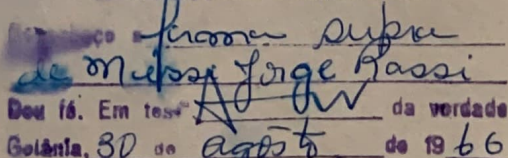 Reconheço a firma supra
de Mussi Jorge Rassi
Dou fé. Em test da verdade
Goiânia, 30 de agôsto de 1966